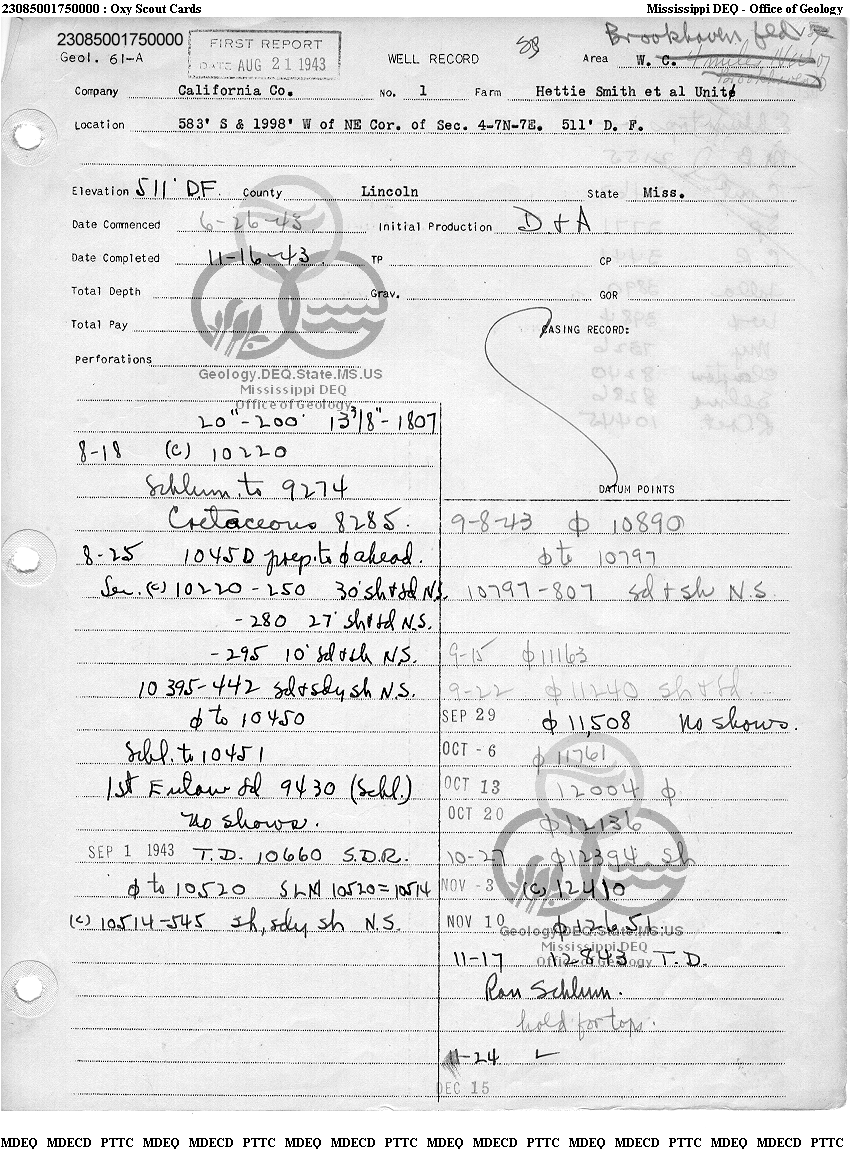 23085001750000 : Oxy Scout Cards
Mississippi DEQ - Office of Geology
23085001750000
Geol. 61-A
FIRST REPORT
DATE AUG 21 1943
WELL RECORD
SB
Brookhaven fld
Area W. C. 4 miles
Brookhaven
Company California Co. No. 1 Farm Hettie Smith et al Unit
Location 583' S & 1998' W of NE Cor. of Sec. 4-7N-7E. 511' D. F.
Elevation 511' D.F. County Lincoln State Miss.
Date Commenced 6-26-43 Initial Production D & A
Date Completed 11-16-43 TP CP
Total Depth Grav. GOR
Total Pay CASING RECORD:
Perforations
Geology.DEQ.State.MS.US
Mississippi DEQ
Office of Geology
20"-200' 13 3/8"-1807
8-18 (c) 10220
Schlum. to 9274
Cretaceous 8285.
8-25 1045D prep. to ϕ ahead.
Ser. (c) 10220-250 30' sh & sd N.S.
-280 27' sh & sd N.S.
-295 10' sd & sh N.S.
10395-442 sd & sdy sh N.S.
ϕ to 10450
Schl. to 10451
1st Eutaw sd 9430 (Schl.)
No shows.
SEP 1 1943 T.D. 10660 S.D.R.
ϕ to 10520 SLM 10520=10514
(c) 10514-545 sh, sdy sh N.S.
DATUM POINTS
9-8-43 ϕ 10890
ϕ to 10797
10797-807 sd & sh N.S.
9-15 ϕ 11163
9-22 ϕ 11240 sh & sd
SEP 29 ϕ 11,508 no shows.
OCT - 6 ϕ 11761
OCT 13 12004 ϕ
OCT 20 ϕ 12136
10-27 ϕ 12394 sh
NOV - 3 (c) 12410
NOV 10 ϕ 12651
Geology.DEQ.State.MS.US
Mississippi DEQ
Office of Geology
11-17 12843 T.D.
Ran Schlum.
hold for tops.
11-24 ✓
DEC 15
MDEQ MDECD PTTC MDEQ MDECD PTTC MDEQ MDECD PTTC MDEQ MDECD PTTC MDEQ MDECD PTTC MDEQ MDECD PTTC